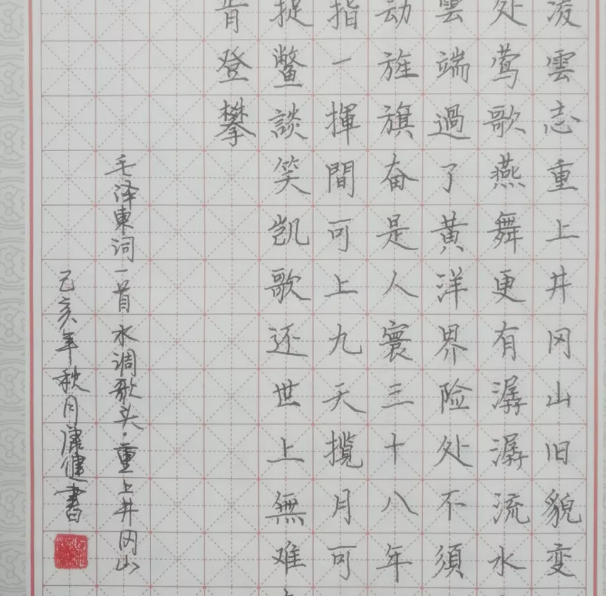 凌雲志重上井冈山旧貌变
处莺歌燕舞更有潺潺流水
雲端過了黄洋界险处不須
动旌旗奋是人寰三十八年
指一揮間可上九天揽月可
捉鳖談笑凯歌还世上無难
肯登攀
毛泽東词一首水调歌头·重上井冈山
己亥年秋月康健書